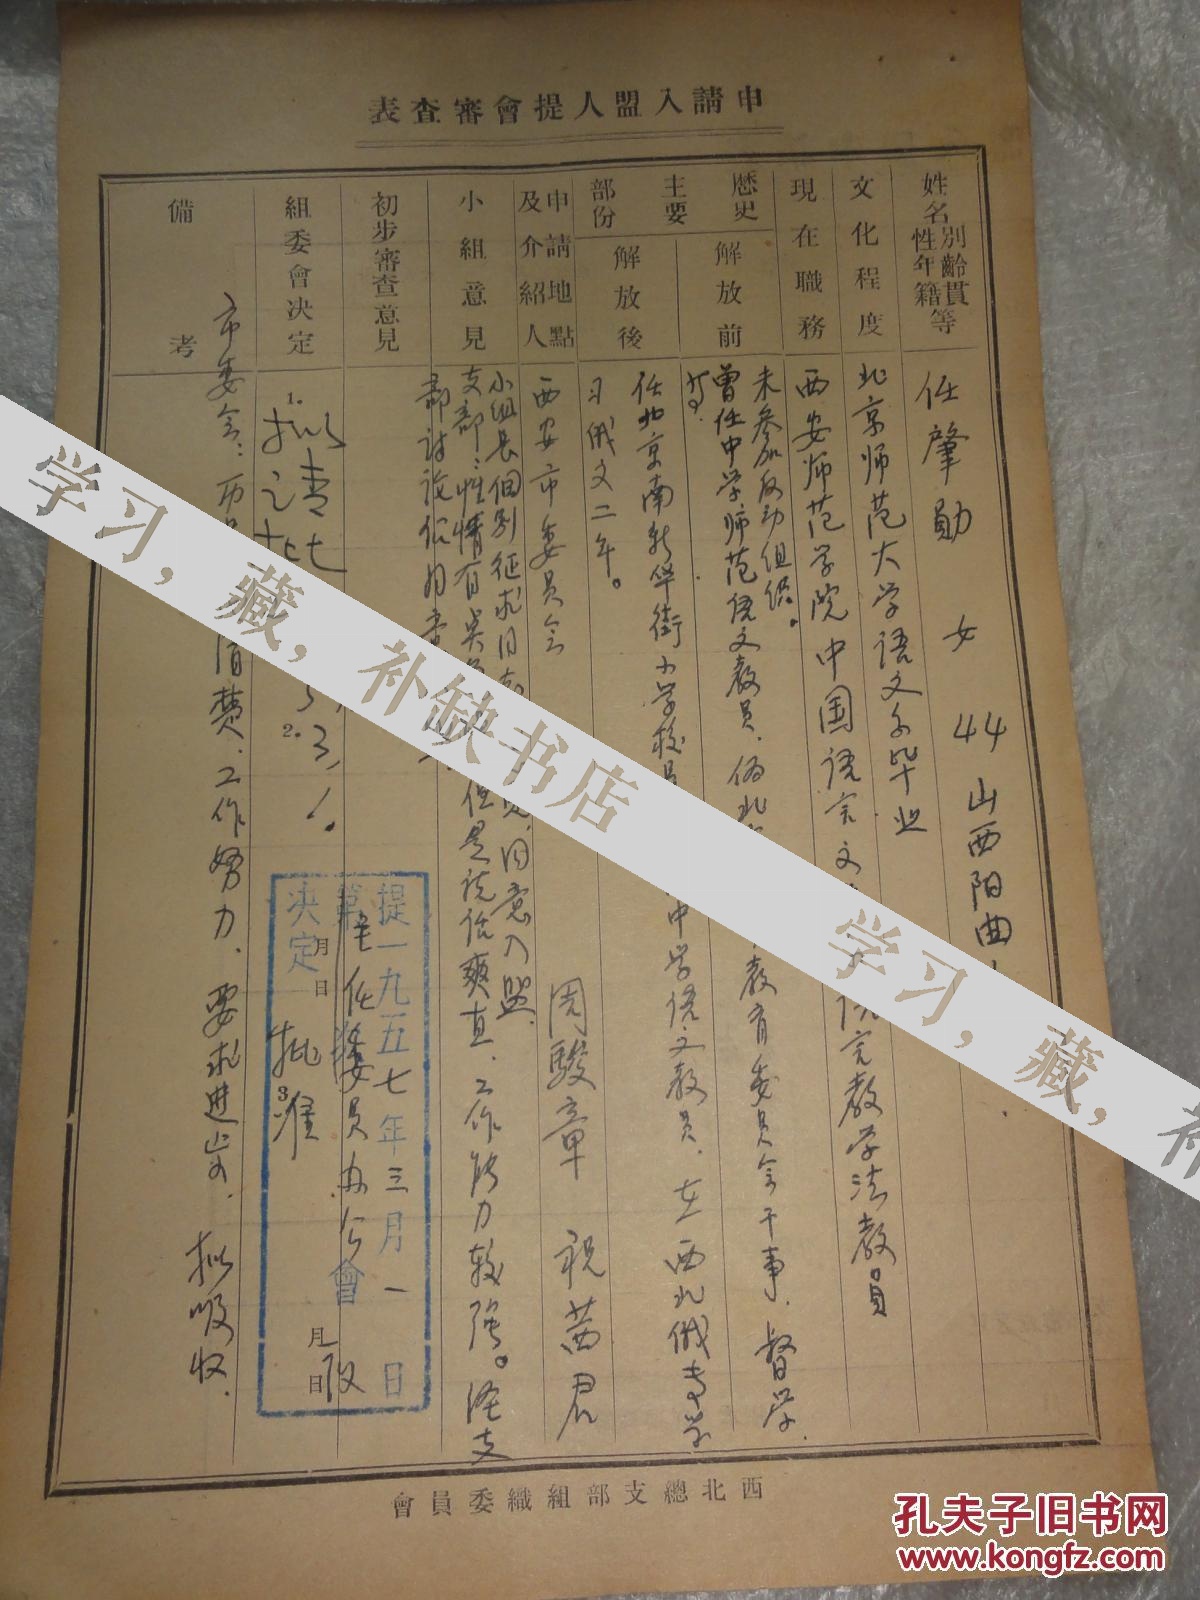 申請入盟人提會審查表
姓名性別年齡籍貫等
任肇勛 女 44 山西阳曲
文化程度
北京师范大学语文系毕业
現在職務
西安师范学院中国语言文
教学法教員
歷史主要部份
解放前
未参加反动组织。
曾任中学师范语文教員、伪北
教育委員会干事、督学、
等.
解放後
任北京南新华街小学校
中学语文教員、在西北俄专学
习俄文二年。
申請地點及介紹人
西安市委員会
周駿章 祝茜君
小組意見
小组長個别征求
同意入盟.
支部：性情有
但是说话爽直、工作能力较强。经支
部讨论
初步審查意見
組委會決定
1.
拟请批
2.
3
批准
提一九五七年三月一日
第主任委員办公會
决定
月 日
月 日
備考
市委会：历
清楚、工作努力、要求进步、拟吸收.
西北總支部組織委員會
学习，藏，补缺书店
学习，藏，补
孔夫子旧书网
www.kongfz.com